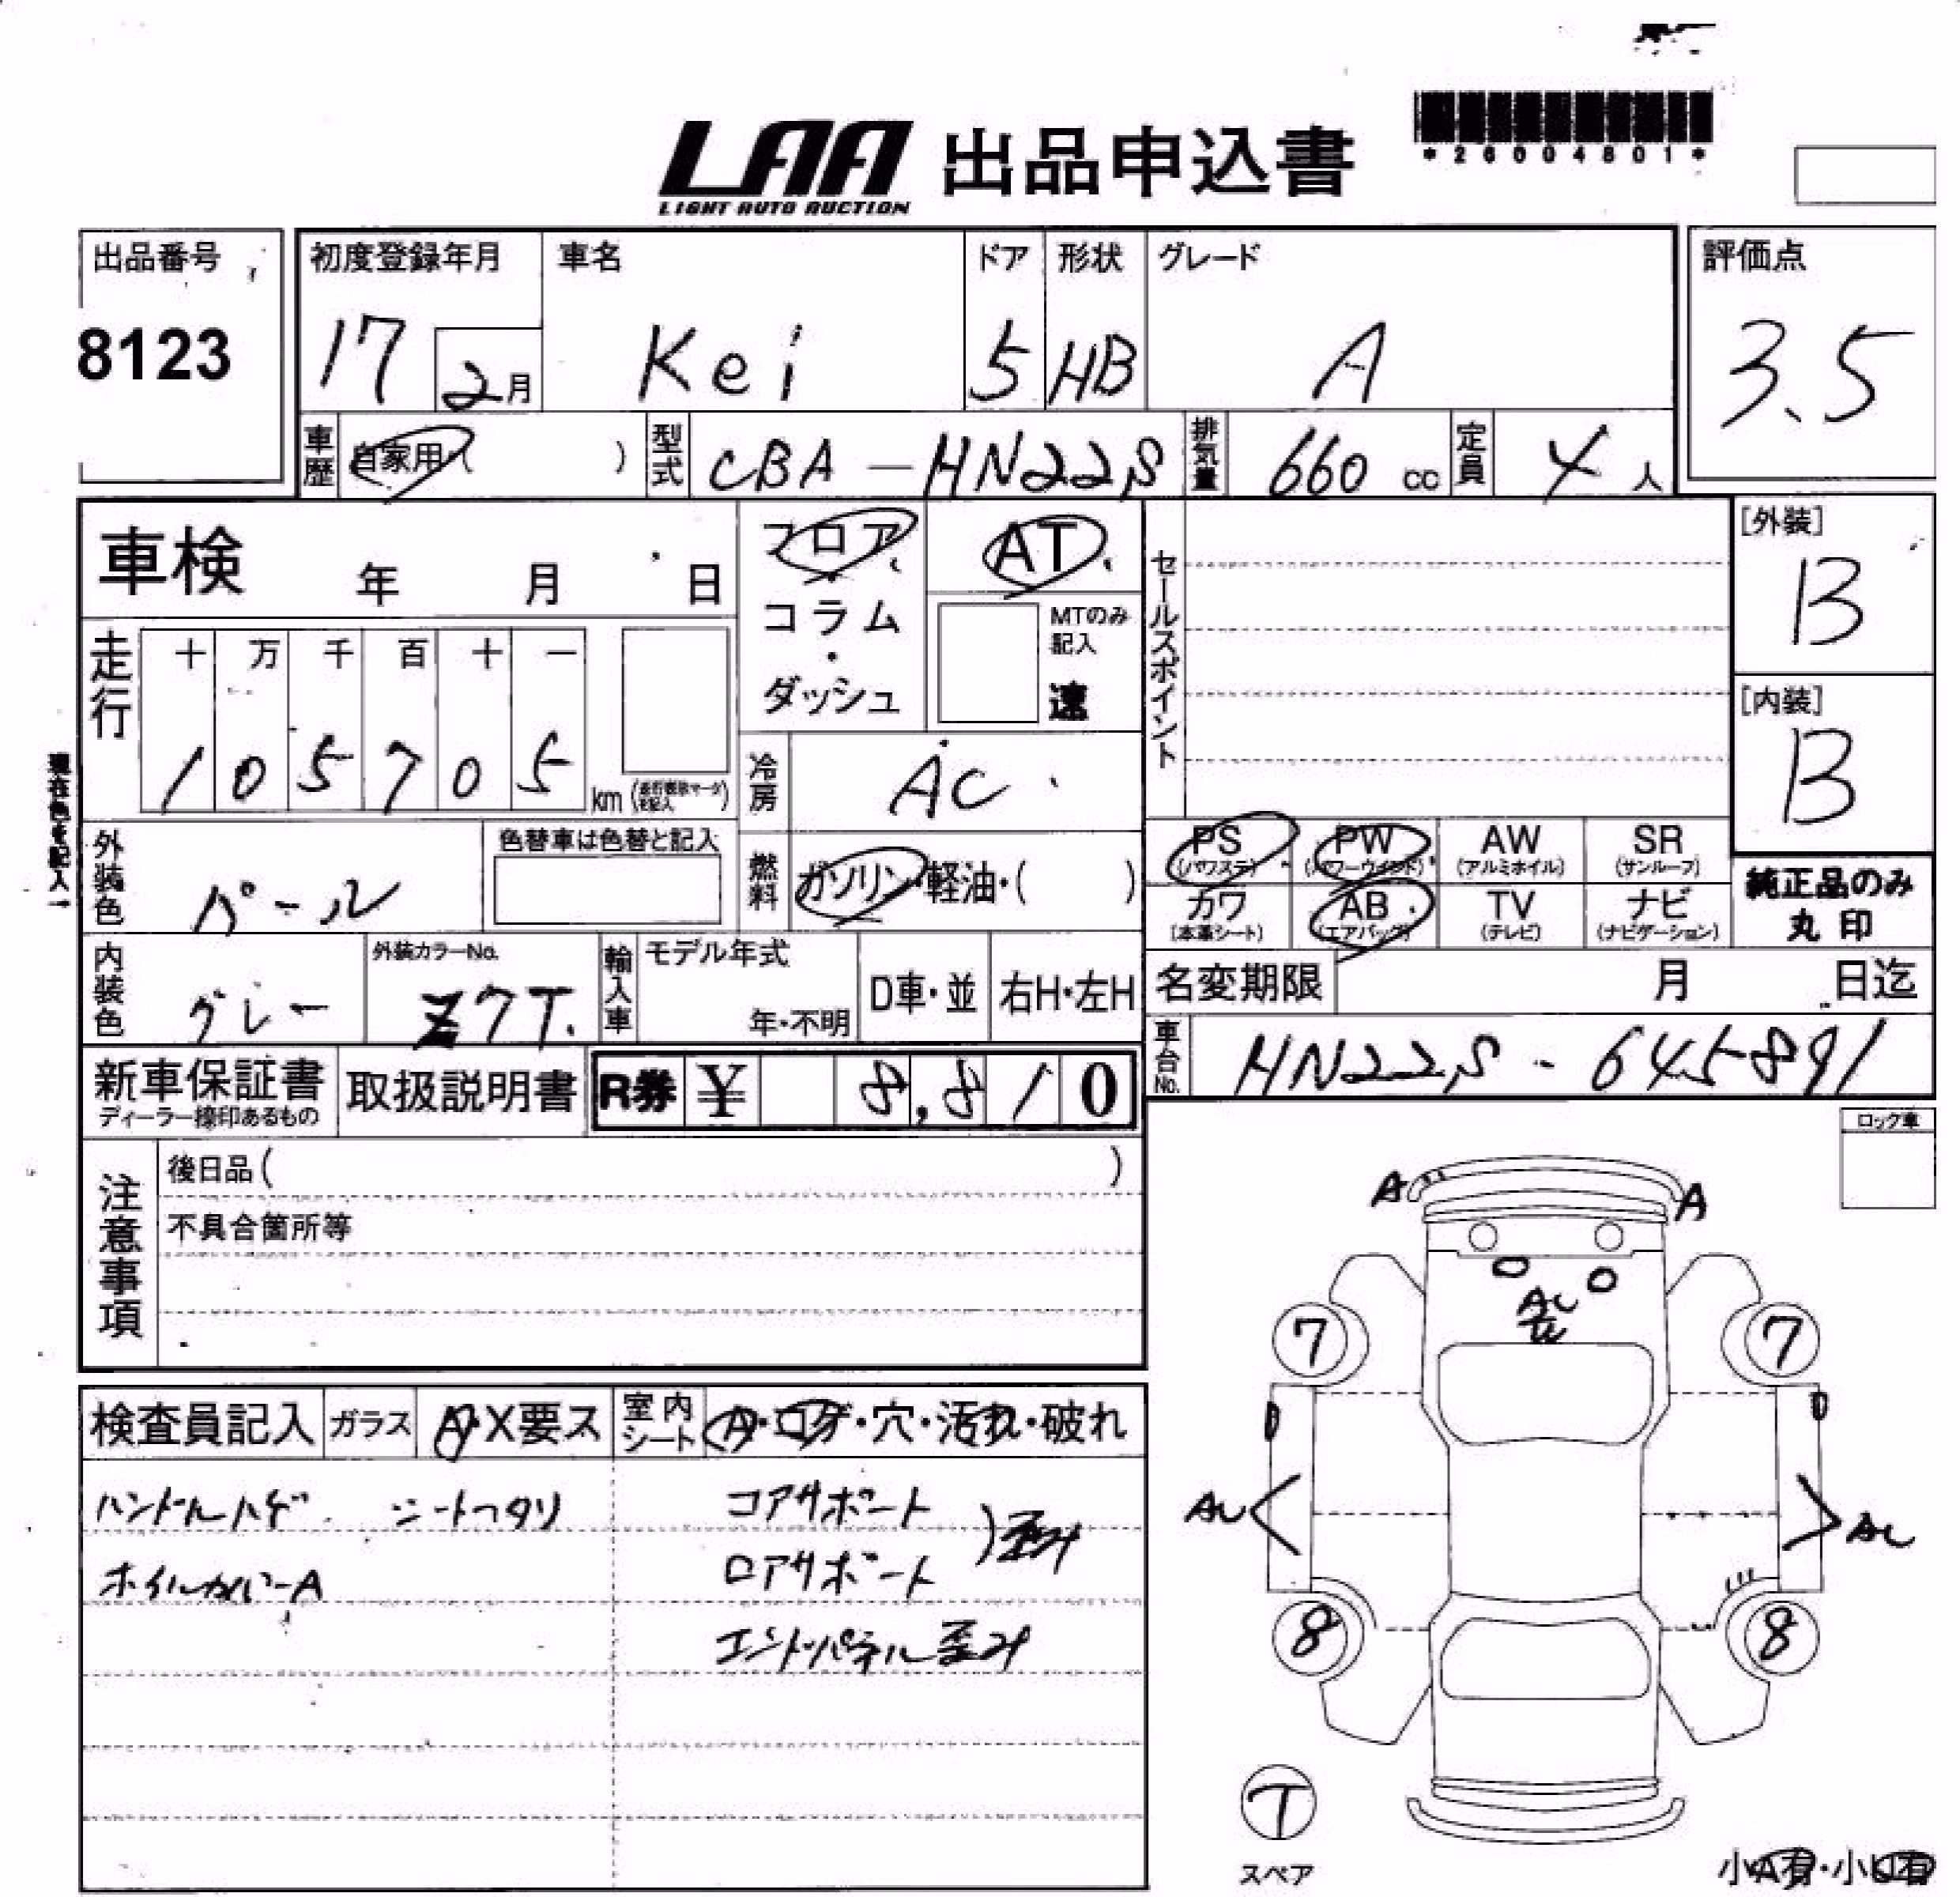 *26004801*
LAA 出品申込書
LIGHT AUTO AUCTION
出品番号
8123
初度登録年月
17 2月
車名
Kei
ドア
5
形状
HB
グレード
A
評価点
3.5
車歴 自家用 ( )
型式 CBA-HN22S
排気量 660 cc
定員 4 人
車検 年 月 日
フロア・コラム・ダッシュ
AT
MTのみ記入
速
セールスポイント
[外装]
B
[内装]
B
走行
十 万 千 百 十 一
1 0 5 7 0 5 km
現在色を記入→
冷房 AC
外装色 パール
色替車は色替と記入
燃料 ガソリン・軽油・( )
PS (パワステ)
PW (パワーウインド)
AW (アルミホイル)
SR (サンルーフ)
カワ (本革シート)
AB (エアバッグ)
TV (テレビ)
ナビ (ナビゲーション)
純正品のみ
丸印
内装色 グレー
外装カラーNo.
Z7T.
輸入車
モデル年式
年・不明
D車・並
右H・左H
名変期限 月 日迄
車台No. HN22S-645891
新車保証書
ディーラー捺印あるもの
取扱説明書
R券 ¥ 8,810
ロック車
注意事項
後日品( )
不具合箇所等
検査員記入
ガラス A・X要ス
室内シート A・コゲ・穴・汚れ・破れ
ハンドルハゲ シートヘタリ
ホイルカバーA
コアサポート
ロアサポート
歪み
エンドパネル歪み
A A
7 7
AU AU
8 8
T
スペア
小A有・小U有